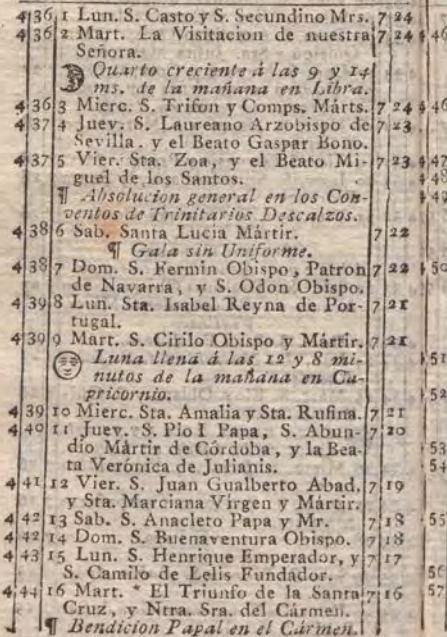 4 36 1 Lun. S. Casto y S. Secundino Mrs. 7 24
4 36 2 Mart. La Visitacion de nuestra 7 24 4 46
Señora.
Quarto creciente á las 9 y 14
ms. de la mañana en Libra.
4 36 3 Mierc. S. Trifon y Comps. Márts. 7 24 4 46
4 37 4 Juev. S. Laureano Arzobispo de 7 23
Sevilla. y el Beato Gaspar Bono.
4 37 5 Vier. Sta. Zoa, y el Beato Mi- 7 23 4 47
guel de los Santos. 48
¶ Absolucion general en los Con- 49
ventos de Trinitarios Descalzos.
4 38 6 Sab. Santa Lucia Mártir. 7 22
¶ Gala sin Uniforme.
4 38 7 Dom. S. Fermin Obispo, Patron 7 22 50
de Navarra, y S. Odon Obispo.
4 39 8 Lun. Sta. Isabel Reyna de Por- 7 21
tugal.
4 39 9 Mart. S. Cirilo Obispo y Mártir. 7 21
Luna llena á las 12 y 8 mi- 51
nutos de la mañana en Ca-
pricornio. 52
4 39 10 Mierc. Sta. Amalia y Sta. Rufina. 7 21
4 40 11 Juev. S. Pio I Papa, S. Abun- 7 20
dio Mártir de Córdoba, y la Bea- 53
ta Verónica de Julianis. 54
4 41 12 Vier. S. Juan Gualberto Abad. 7 19
y Sta. Marciana Vírgen y Mártir.
4 42 13 Sab. S. Anacleto Papa y Mr. 7 18 55
4 42 14 Dom. S. Buenaventura Obispo. 7 18
4 43 15 Lun. S. Henrique Emperador, y 7 17
S. Camilo de Lelis Fundador. 56
4 44 16 Mart. * El Triunfo de la Santa 7 16 57
Cruz, y Ntra. Sra. del Cármen.
¶ Bendicion Papal en el Cármen.